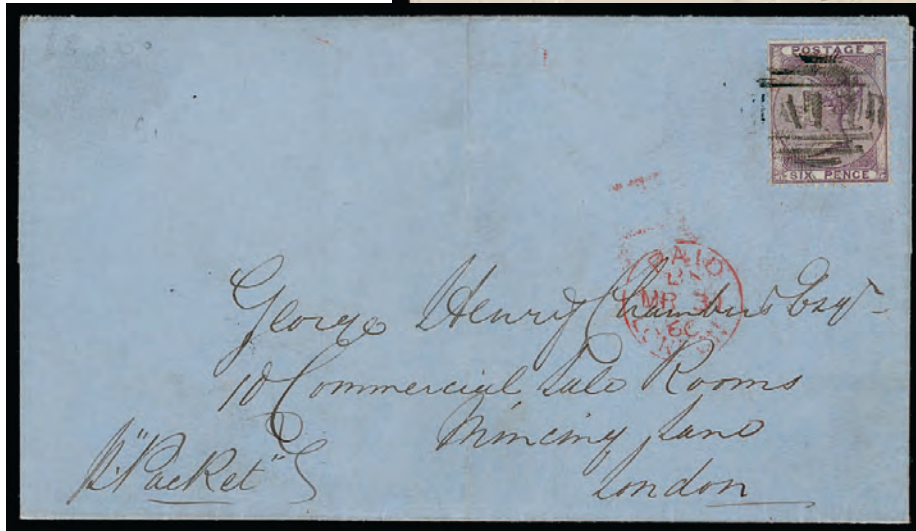 POSTAGE
SIX PENCE
PAID
MR 30
60
LONDON
George Henry Chambers Esqr
10 Commercial Sale Rooms
Mincing Lane
London
"Packet"